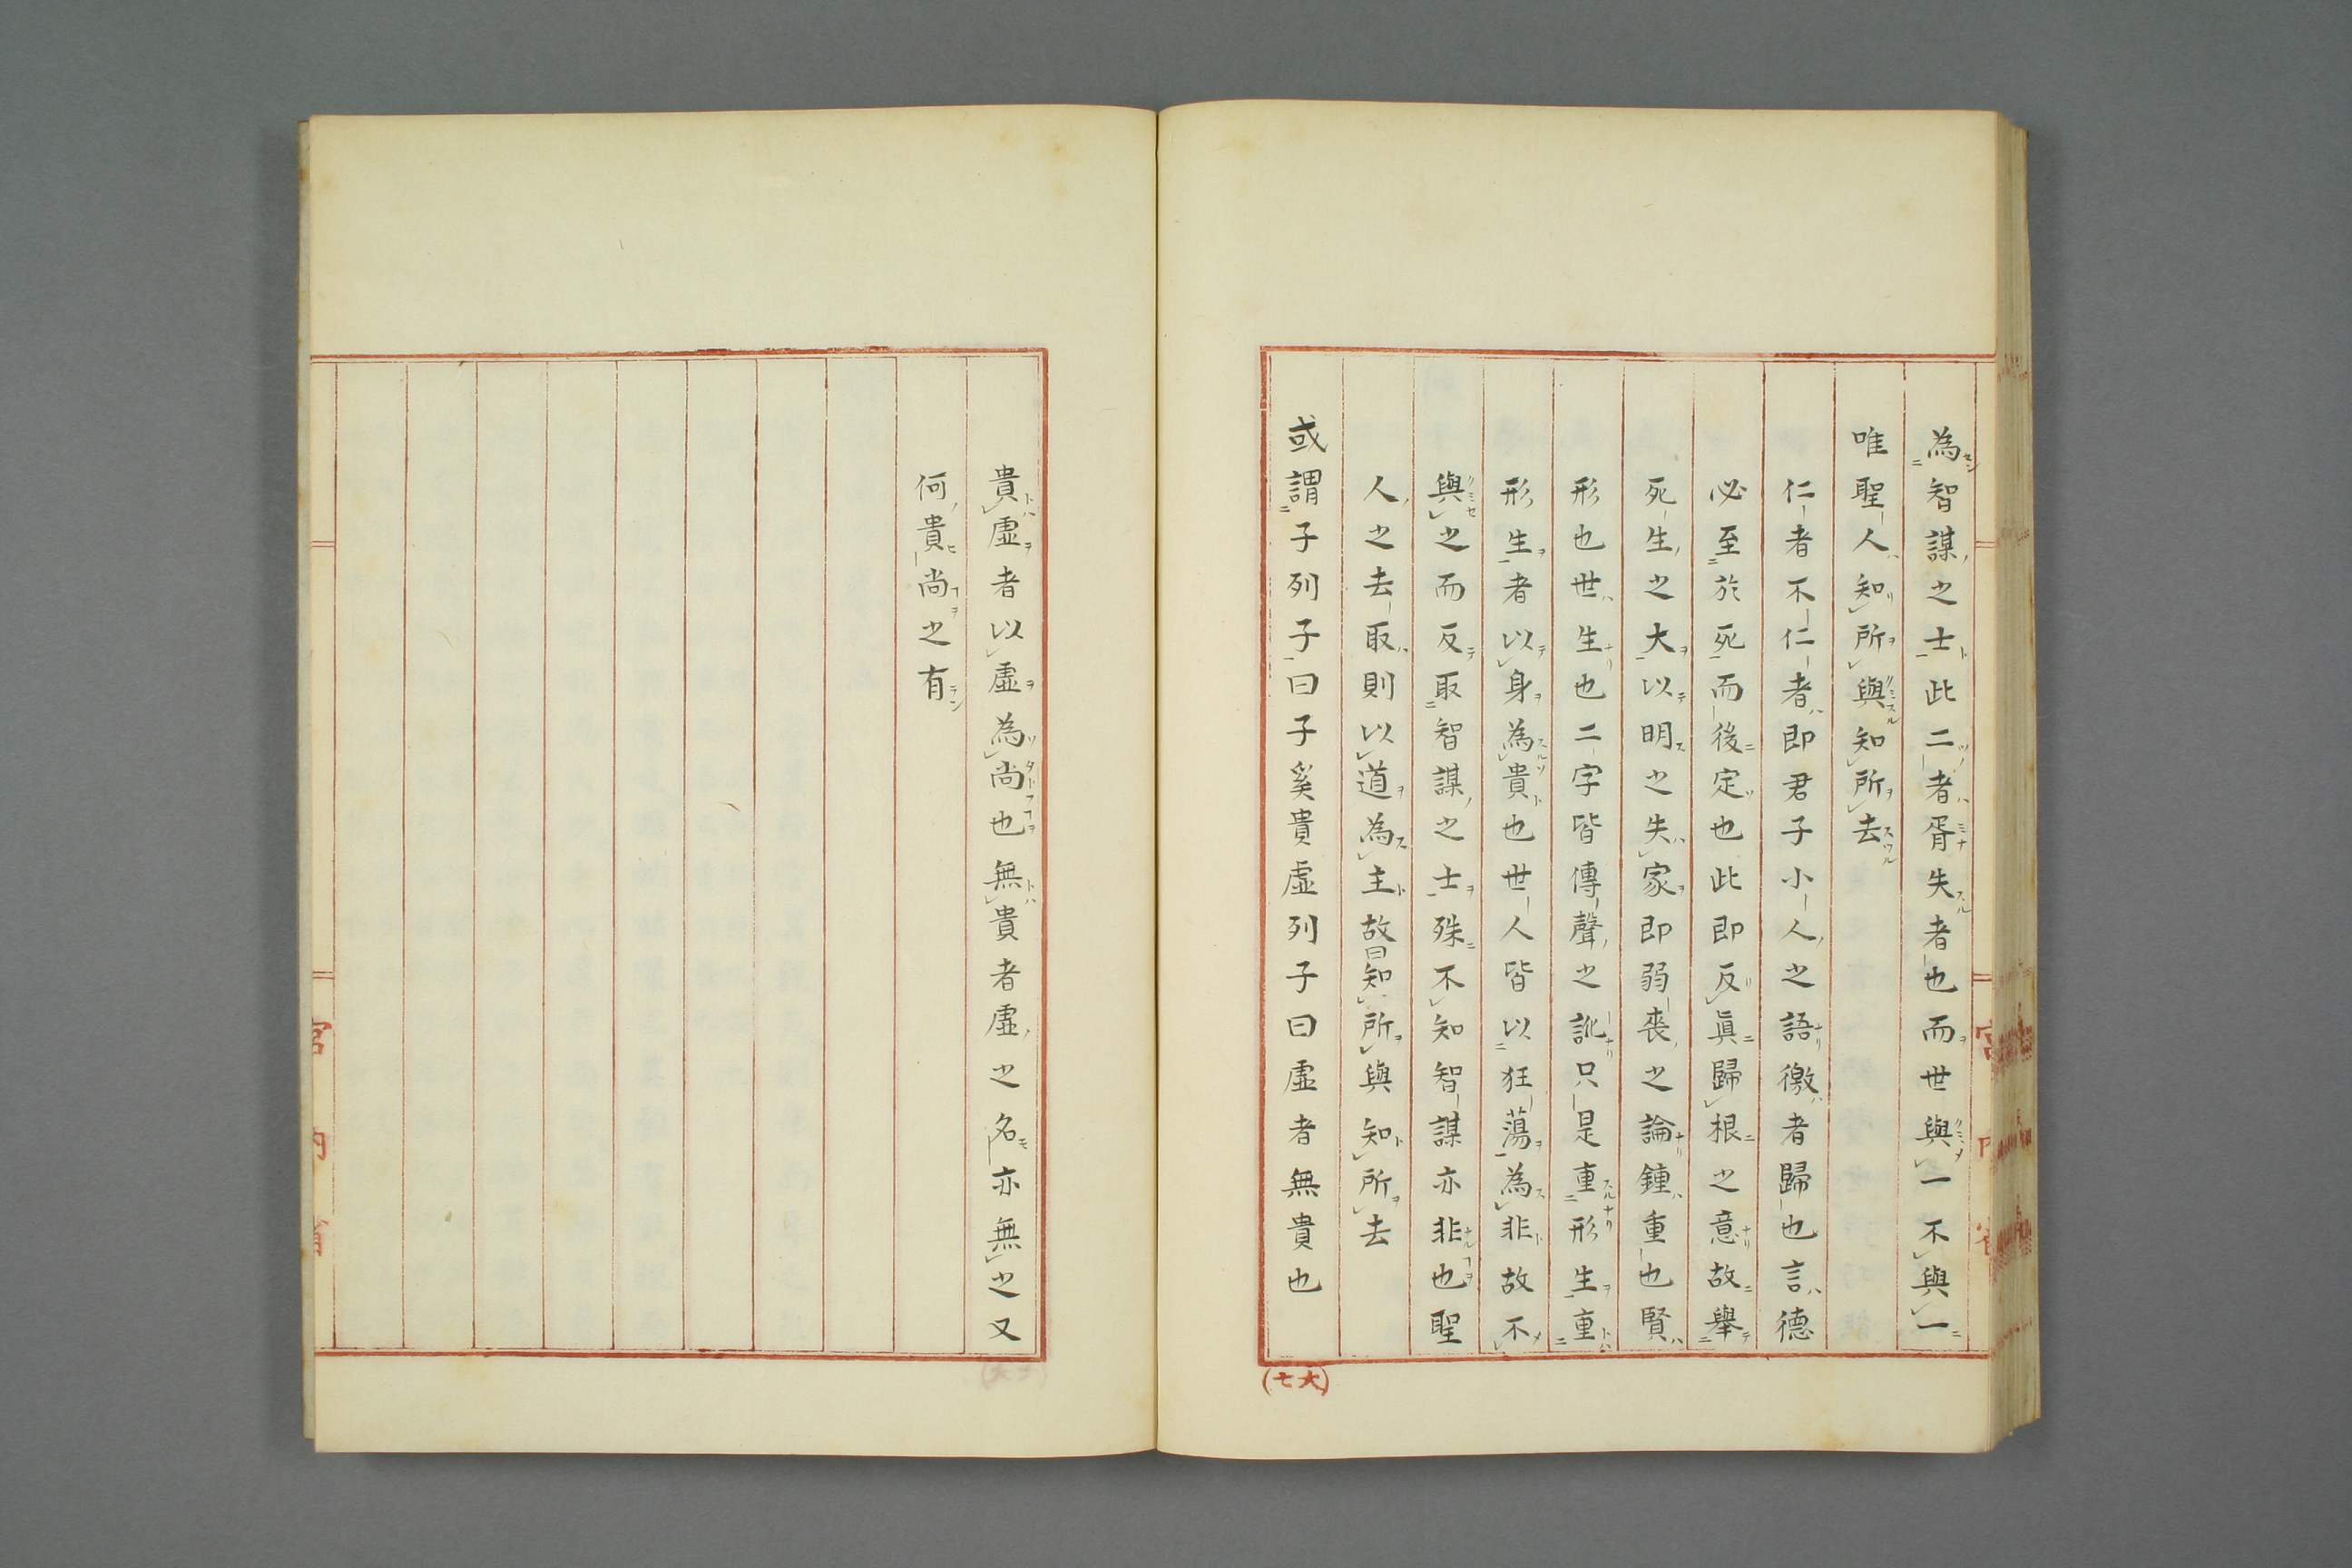 為智謀之士此二者胥失者也而世與一不與一
唯聖人知所與知所去
仁者不仁者即君子小人之語徼者歸也言德
必至於死而後定也此即反眞歸根之意故舉
死生之大以明之失家即弱喪之論鍾重也賢
形也世生也二字皆傳聲之訛只是重形生重
形生者以身為貴也世人皆以狂蕩為非故不
與之而反取智謀之士殊不知智謀亦非也聖
人之去取則以道為主故曰知所與知所去
或謂子列子曰子奚貴虛列子曰虛者無貴也
(大七)
貴虛者以虛為尚也無貴者虛之名亦無之又
何貴尚之有